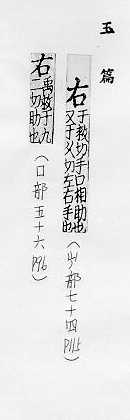 玉篇
右
于救切手口相助也
又于久切左右手也
(部七十四 P115)
右
禹救于九
二切助也
(口部五十六 P96)